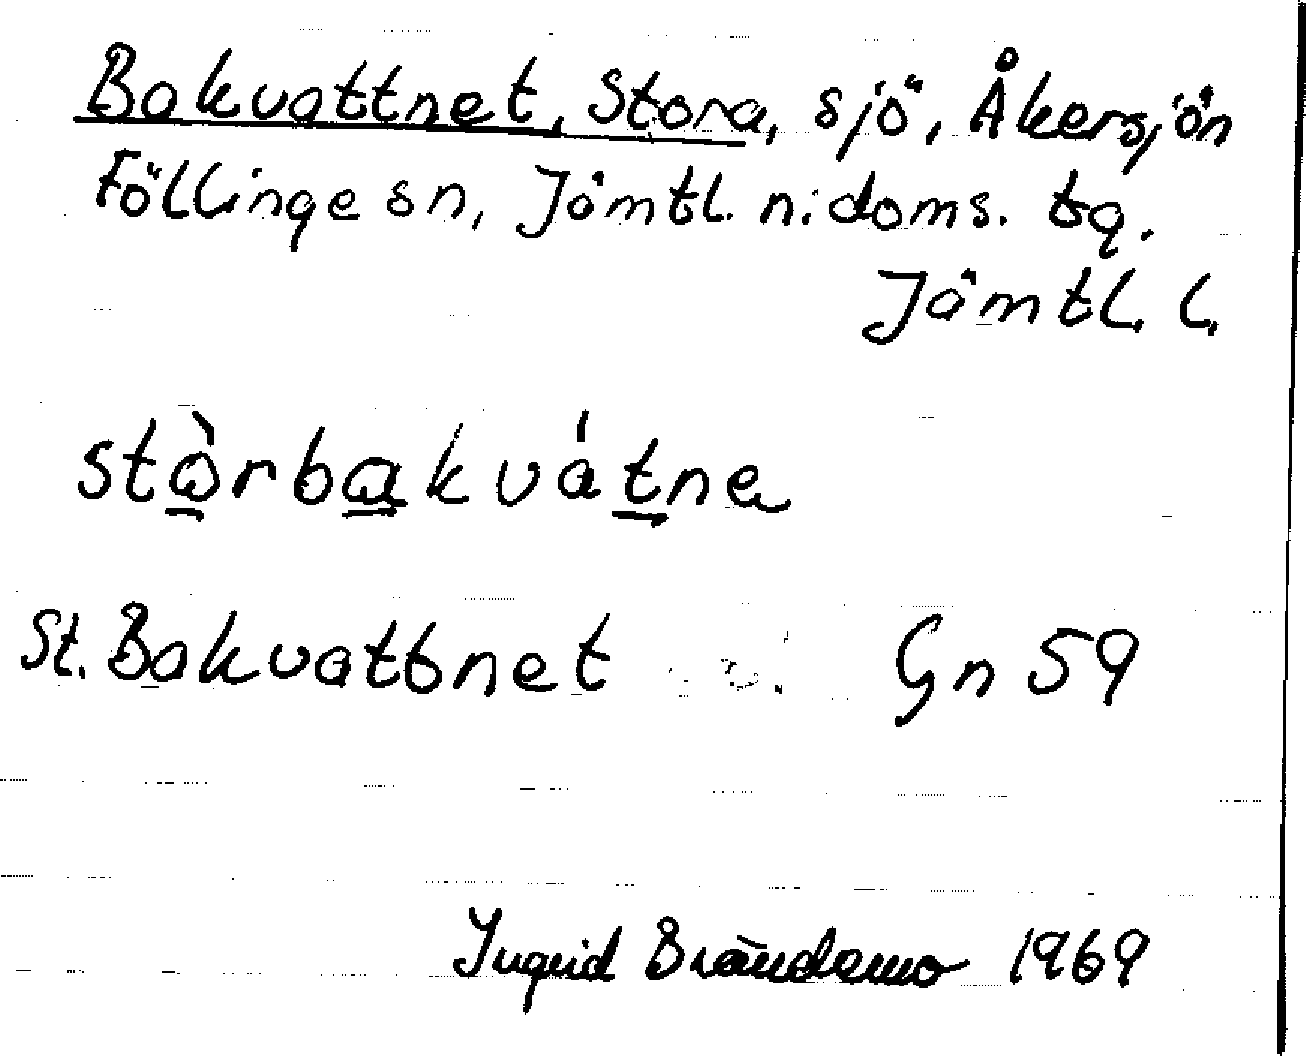 Bakvattnet, Stora, sjö, Åkersjön
Föllinge sn, Jämtl. n. doms. tg.
Jämtl. l.
stòrbakvátne
St. Bakvattnet Gn 59
Ingrid Brändemo 1969